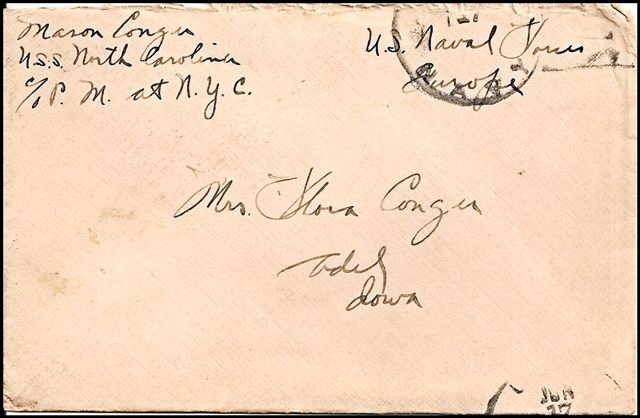 Mason Conger
U.S.S. North Carolina
c/o P. M. at N. Y. C.
U.S. Naval Forces
Europe
Mrs. Flora Conger
Adel
Iowa